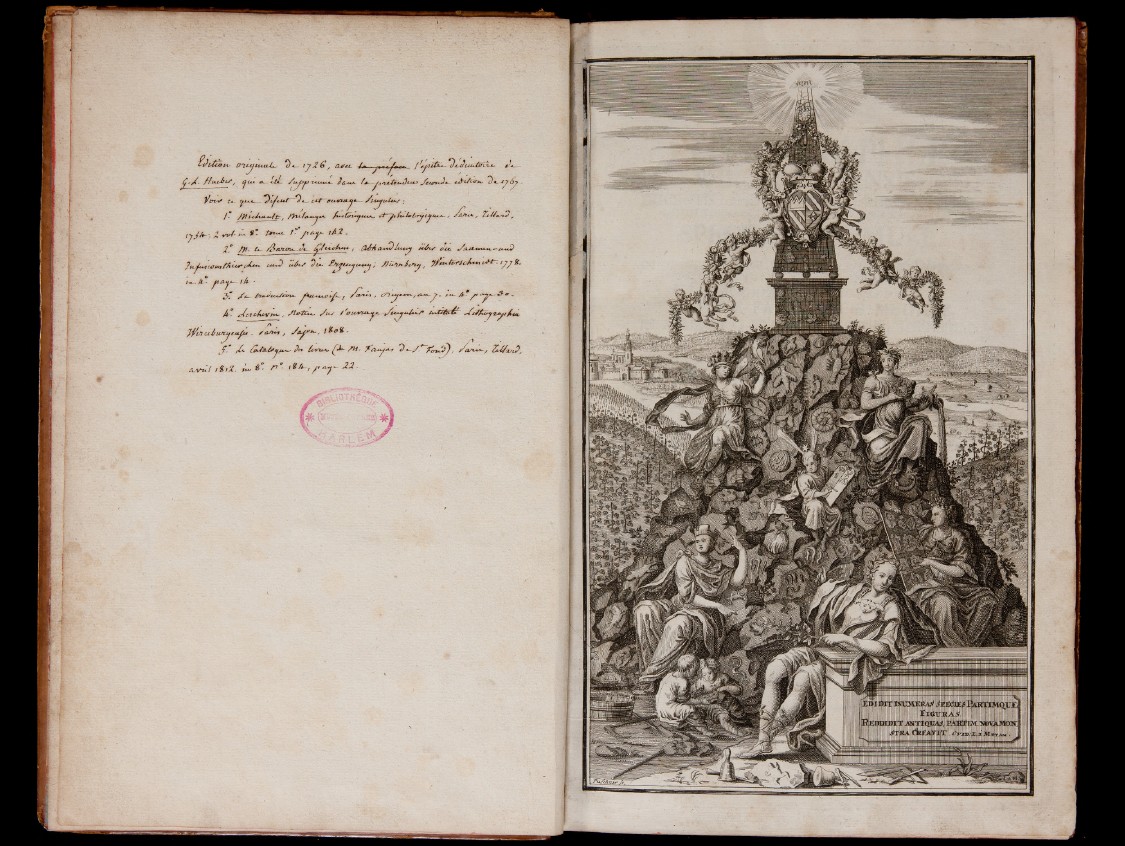 Edition originale de 1726, avec la préface l'épitre dédicatoire de
G. L. Hueber, qui a été supprimé dans la prétendue seconde édition de 1767.
Voir ce que disent de cet ouvrage singulier;
1° Michault, mélanges historiques et philologiques. Paris, Tilliard,
1754. 2 vol in 8° tome 1er page 142.
2° M. le Baron de Gleichen, Abhandlung über die Saamen- und
Infusionsthierchen und über die Erzeugung; Nürnberg, Winterschmidt. 1778
in 4° page 14.
3° La traduction françoise, Paris, an 7. in 4° page 30.
4° Lerchevin, Notice sur l'ouvrage singulier intitulé Lithographia
Wirceburgensis. Paris, Sajou, 1808.
5° Le Catalogue des livres (de M. Faujas de St Fond), Paris, Tilliard,
avril 1812. in 8° N° 184, page 22.
BIBLIOTHÈQUE
HARLEM
EDIDIT INUMERAS SPECIES PARTIMQUE
FIGURAS
REDDIDIT ANTIQUAS, PARTIM NOVA MON
STRA CREAVIT